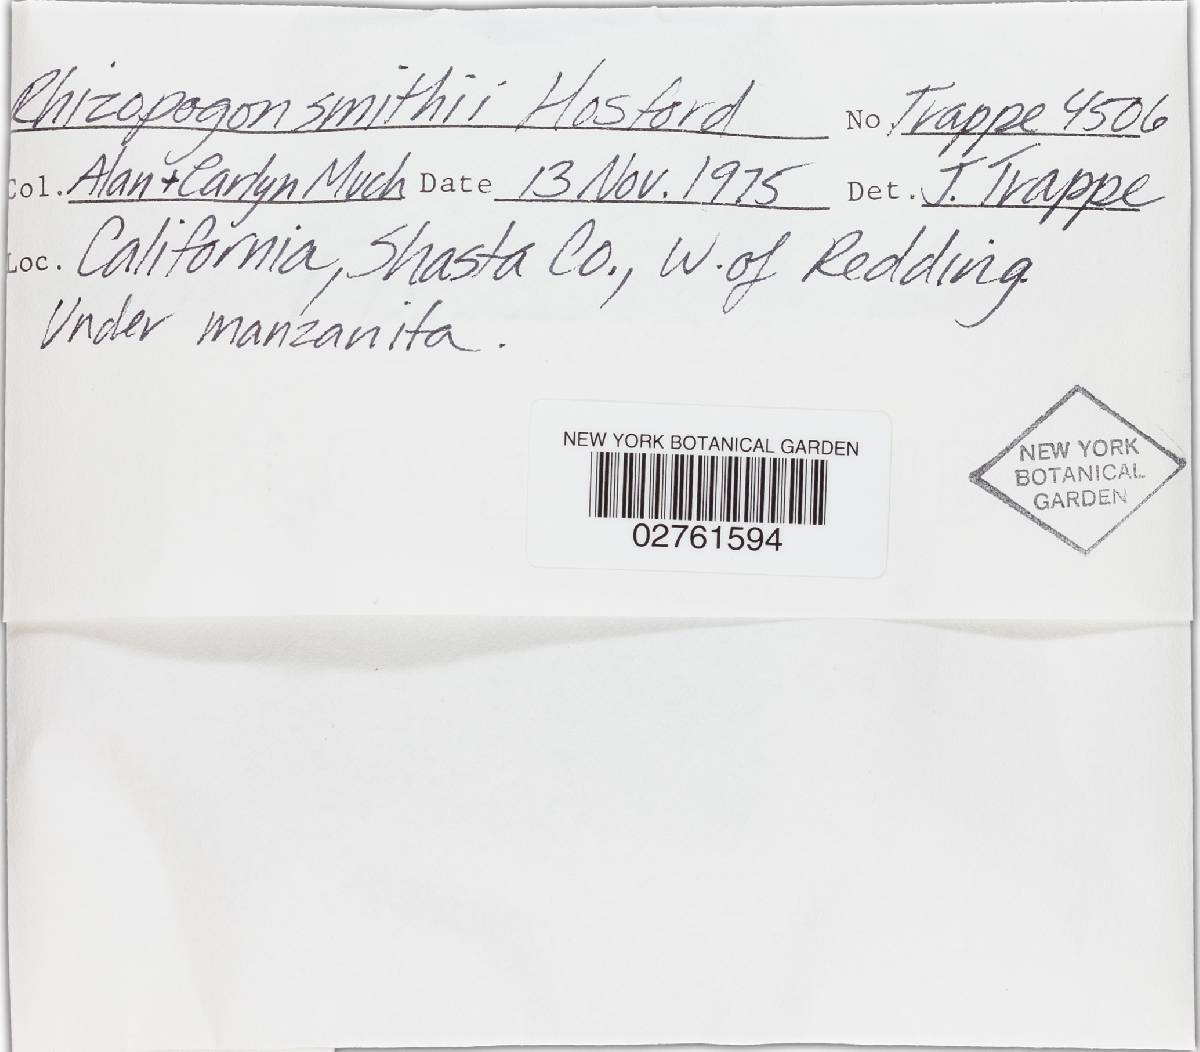 Rhizopogon smithii Hosford No. Trappe 4506
Col. Alan + Carlyn Much Date 13 Nov. 1975 Det. J. Trappe
Loc. California, Shasta Co., W. of Redding
Under manzanita.
NEW YORK BOTANICAL GARDEN
02761594
NEW YORK
BOTANICAL
GARDEN